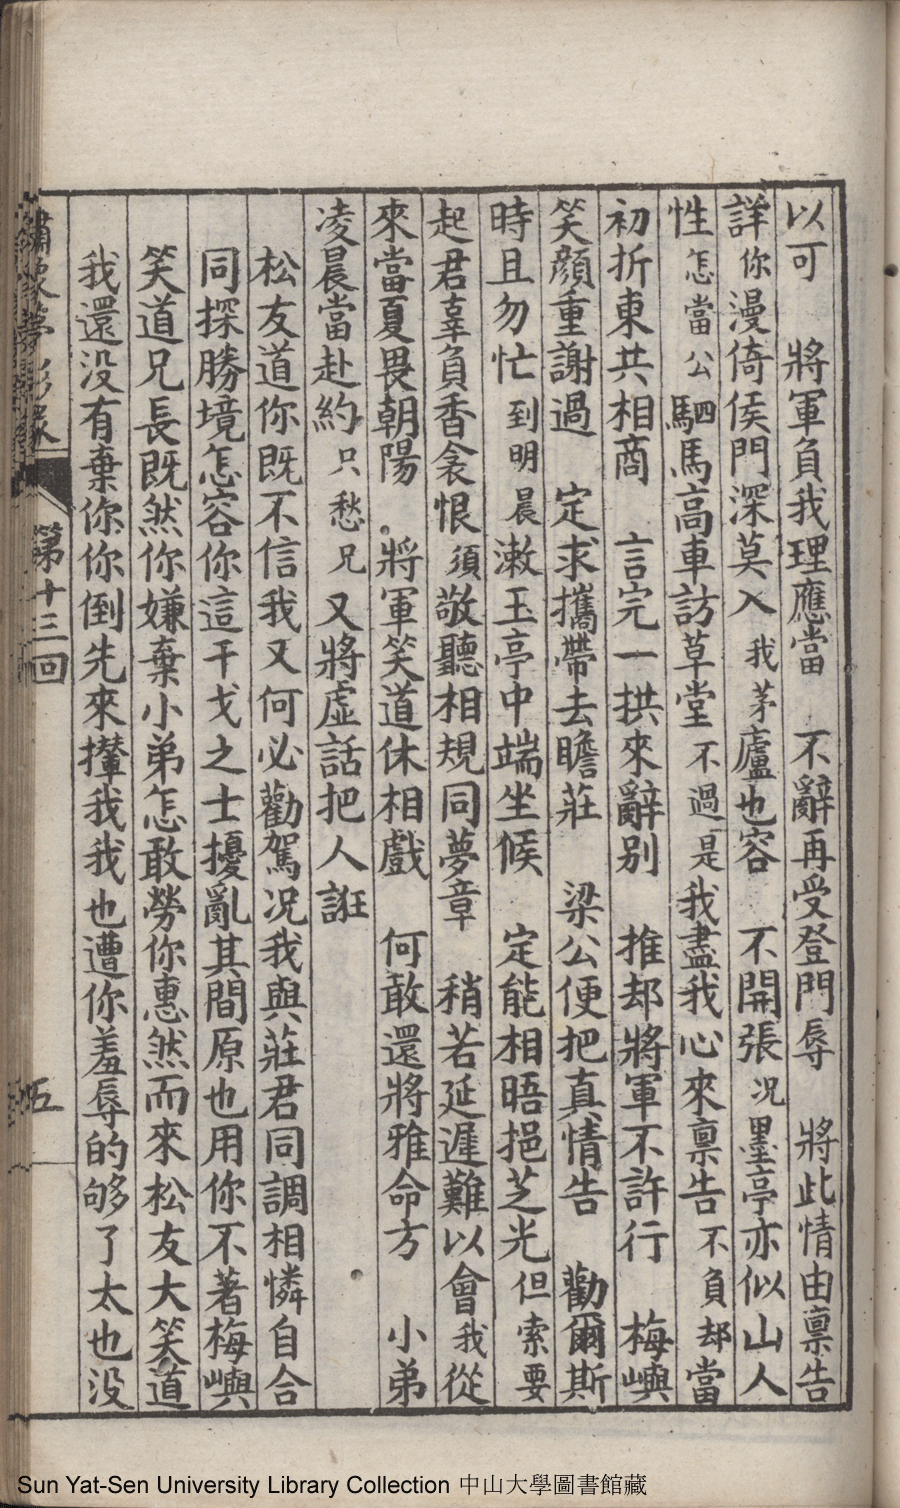 以可　將軍負我理應當　不辭再受登門辱　將此情由禀告
詳你漫倚侯門深莫入我茅廬也容　不開張况墨亭亦似山人
性怎當公駟馬高車訪草堂不過是我盡我心來禀告不負却當
初折柬共相商　言完一拱來辭别　推却將軍不許行　梅嶼
笑顔重謝過　定求攜帶去瞻莊　梁公便把真情告　勸爾斯
時且勿忙到明晨漱玉亭中端坐候　定能相晤挹芝光但索要
起君辜負香衾恨須敬聽相規同夢章　稍若延遲難以會我從
來當夏畏朝陽。將軍笑道休相戲　何敢還將雅命方　小弟
凌晨當赴約只愁兄又將虚話把人誑
松友道你既不信我又何必勸駕况我與莊君同調相憐自合
同探勝境怎容你這干戈之士擾亂其間原也用你不著梅嶼
笑道兄長既然你嫌棄小弟怎敢勞你惠然而來松友大笑道
我還没有棄你你倒先來攆我我也遭你羞辱的够了太也没
繡像夢影緣
第十三回
五
Sun Yat-Sen University Library Collection 中山大學圖書館藏